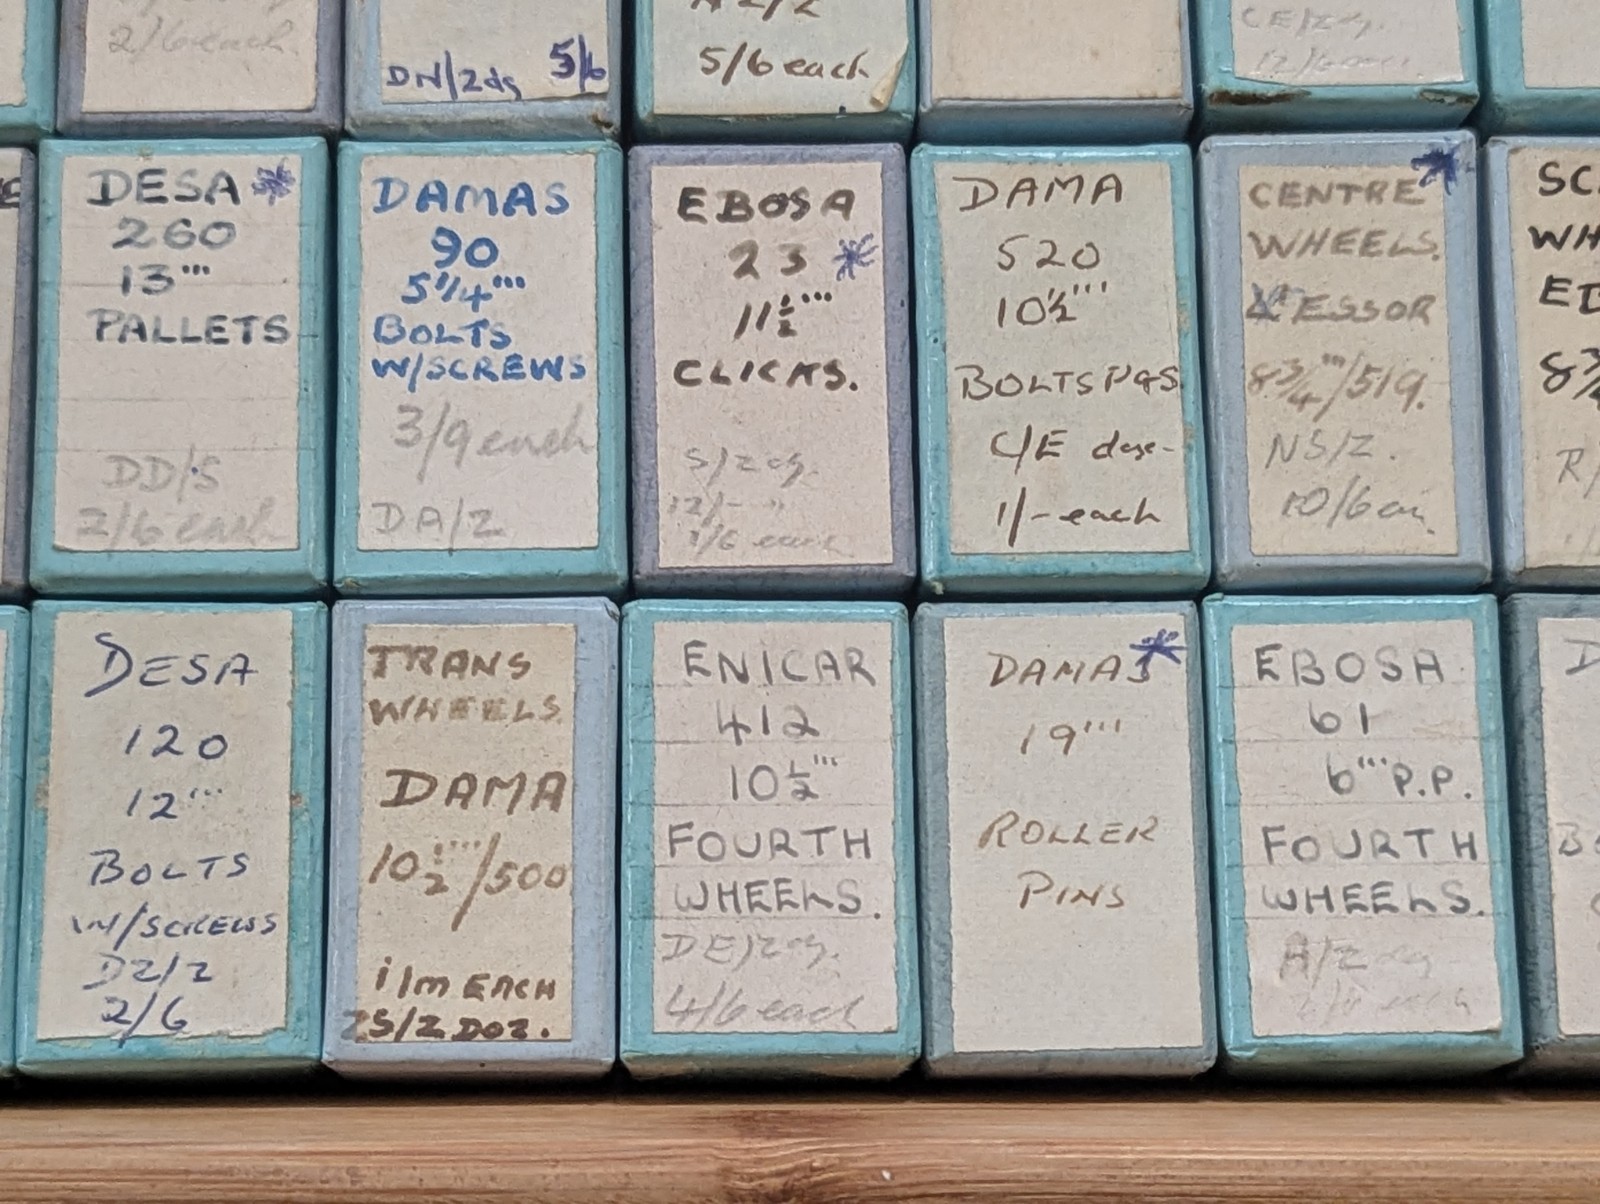 2/6 each
DN/2dg 5/6
5/6 each
DESA
260
13'''
PALLETS
DD/S
2/6 each
DAMAS
90
5 1/4'''
BOLTS
W/SCREWS
3/9 each
DA/2
EBOSA
23
11 1/2'''
CLICKS.
S/2
12/- "
1/6 each
DAMA
520
10 1/2'''
BOLTS
C/E
1/- each
CENTRE
WHEELS.
ESSOR
8 3/4'''/519.
NS/Z.
10/6
SC
WH
8 3/4
R/
DESA
120
12'''
BOLTS
W/SCREWS
DZ/2
2/6
TRANS
WHEELS
DAMA
10 1/2'''/500
EACH
DOZ.
ENICAR
412
10 1/2'''
FOURTH
WHEELS.
DE/2
4/6 each
DAMAS
19'''
ROLLER
PINS
EBOSA
61
6''' P.P.
FOURTH
WHEELS.
A/2
D